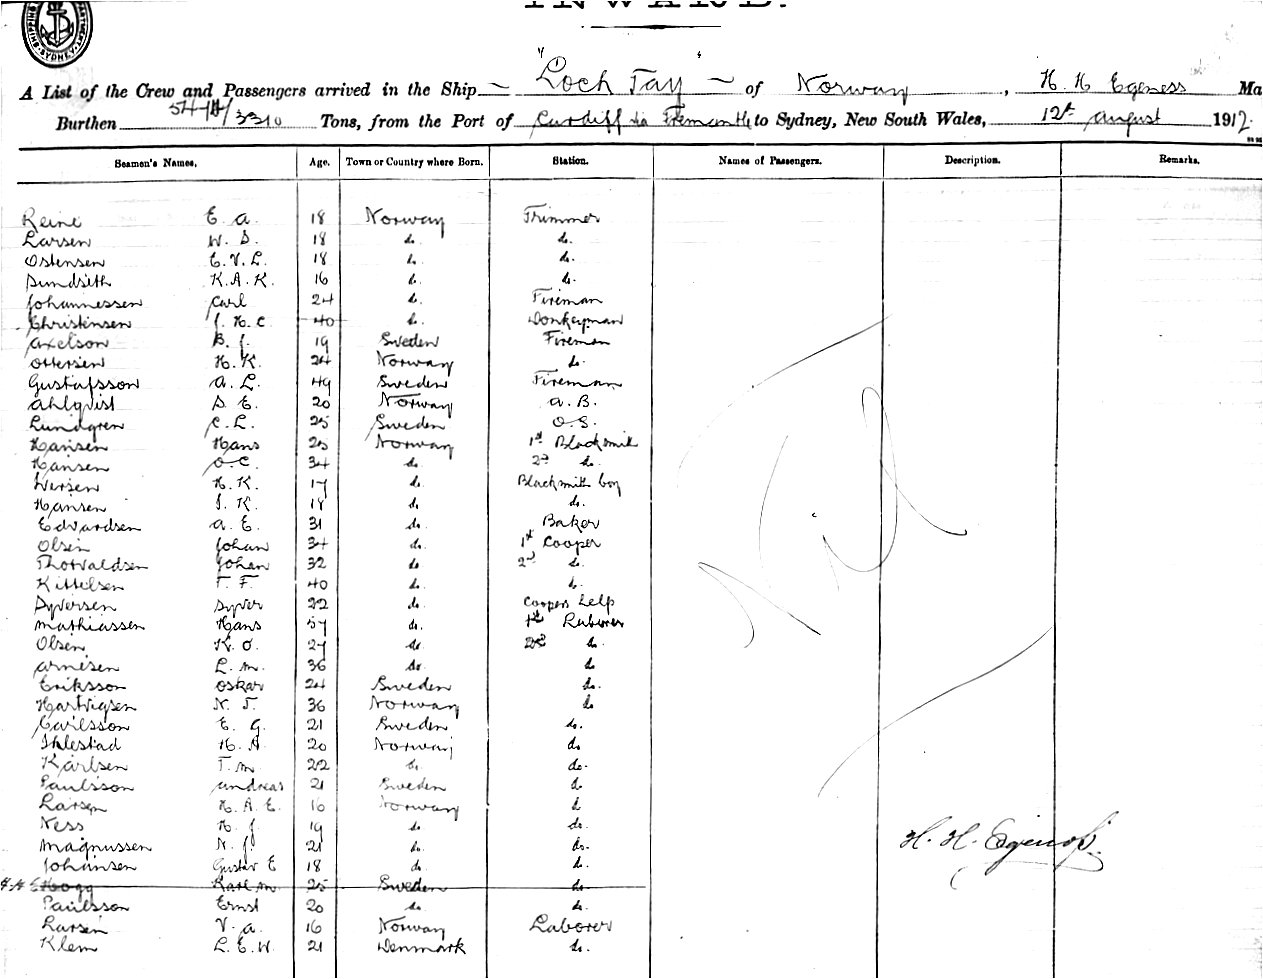 INWARD.
SHIPPING DEPARTMENT SYDNEY
A List of the Crew and Passengers arrived in the Ship "Loch Tay" of Norway, H. H. Egeness Ma
Burthen 3310 Tons, from the Port of Cardiff via Fremantle to Sydney, New South Wales, 12th August 1912.
Seamen's Names. Age. Town or Country where Born. Station. Names of Passengers. Description. Remarks.
Reine E. A. 18 Norway Trimmer
Larsen W. S. 18 do. do.
Ostensen E. V. L. 18 do. do.
Sundseth K. A. K. 16 do. do.
Johannessen Carl 24 do. Fireman
Christensen J. H. C 40 do. Donkeyman
Axelson B. J. 19 Sweden Fireman
Ottersen H. K. 24 Norway do.
Gustafsson A. L. 49 Sweden Fireman
Ahlqvist S. E. 20 Norway A. B.
Lundgren C. L. 25 Sweden O. S.
Hansen Hans 25 Norway 1st Blacksmith
Hansen O. C. 34 do. 2nd do.
Iversen H. K. 17 do. Blacksmith boy
Hansen J. K. 18 do. do.
Edvardsen A. E. 31 do. Baker
Olsen Johan 34 do. 1st Cooper
Thorvaldsen Johan 32 do 2nd do.
Kittelsen T. F. 40 do. do.
Syversen Syver 22 do. Coopers help
Mathiassen Hans 57 do. 1st Laborer
Olsen K. O. 27 do 2nd do.
Arnesen L. M. 36 do. do
Eriksson Oskar 24 Sweden do.
Hartvigsen N. T. 36 Norway do
Carlsson E. G. 21 Sweden do.
Ihlestad H. A. 20 Norway do
Karlsen T. M. 22 do. do.
Paulsson Andreas 21 Sweden do
Larsen H. A. E. 16 Norway do
Ness H. J. 19 do. do.
Magnussen N. J. 21 do. do.
Johansen Gustav E 18 do. do.
Hogg Karl M 25 Sweden do.
Paulsson Ernst 20 do. do.
Larsen V. A. 16 Norway Laborer
Klem L. E. W. 21 Denmark do.
Nil
H. H. Egenes